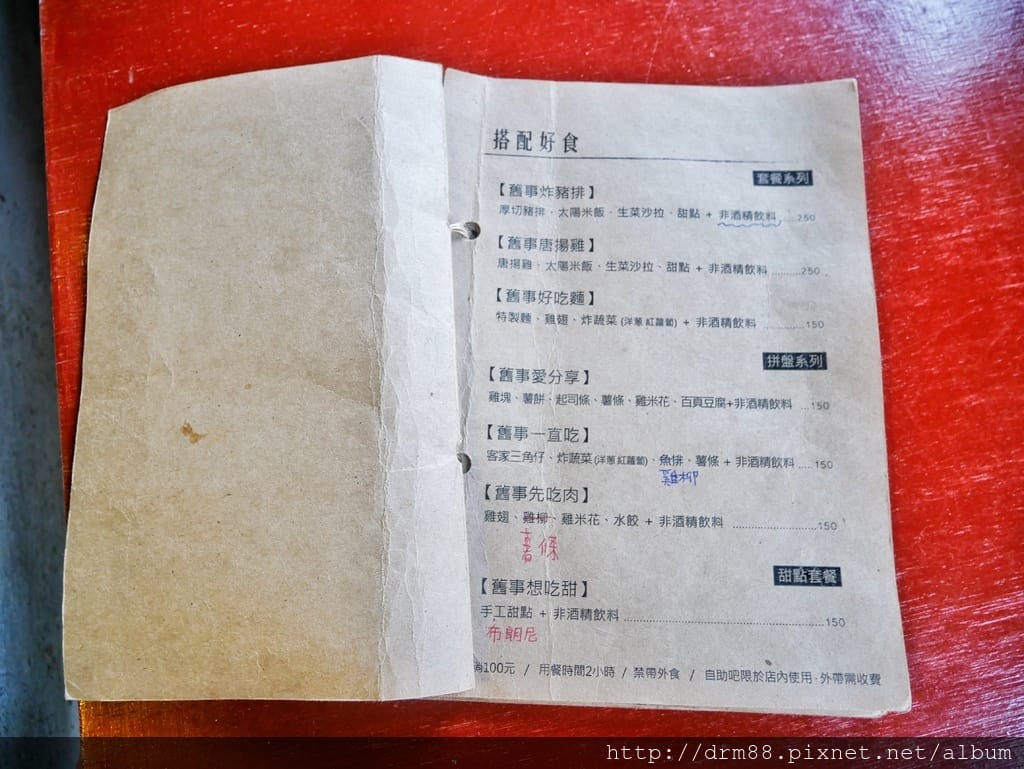 搭配好食
套餐系列
【舊事炸豬排】
厚切豬排、太陽米飯、生菜沙拉、甜點 + 非酒精飲料 ...250
【舊事唐揚雞】
唐揚雞、太陽米飯、生菜沙拉、甜點 + 非酒精飲料 ..........250
【舊事好吃麵】
特製麵、雞翅、炸蔬菜 (洋蔥 紅蘿蔔) + 非酒精飲料 ............150
拼盤系列
【舊事愛分享】
雞塊、薯餅、起司條、薯條、雞米花、百頁豆腐+非酒精飲料 ...150
【舊事一直吃】
客家三角仔、炸蔬菜 (洋蔥 紅蘿蔔)、魚排、薯條 + 非酒精飲料 .....150
雞柳
【舊事先吃肉】
雞翅、雞柳、雞米花、水餃 + 非酒精飲料 ........................150
薯條
甜點套餐
【舊事想吃甜】
手工甜點 + 非酒精飲料 ..................................................150
布朗尼
消100元 / 用餐時間2小時 / 禁帶外食 / 自助吧限於店內使用，外帶需收費
http://drm88.pixnet.net/album